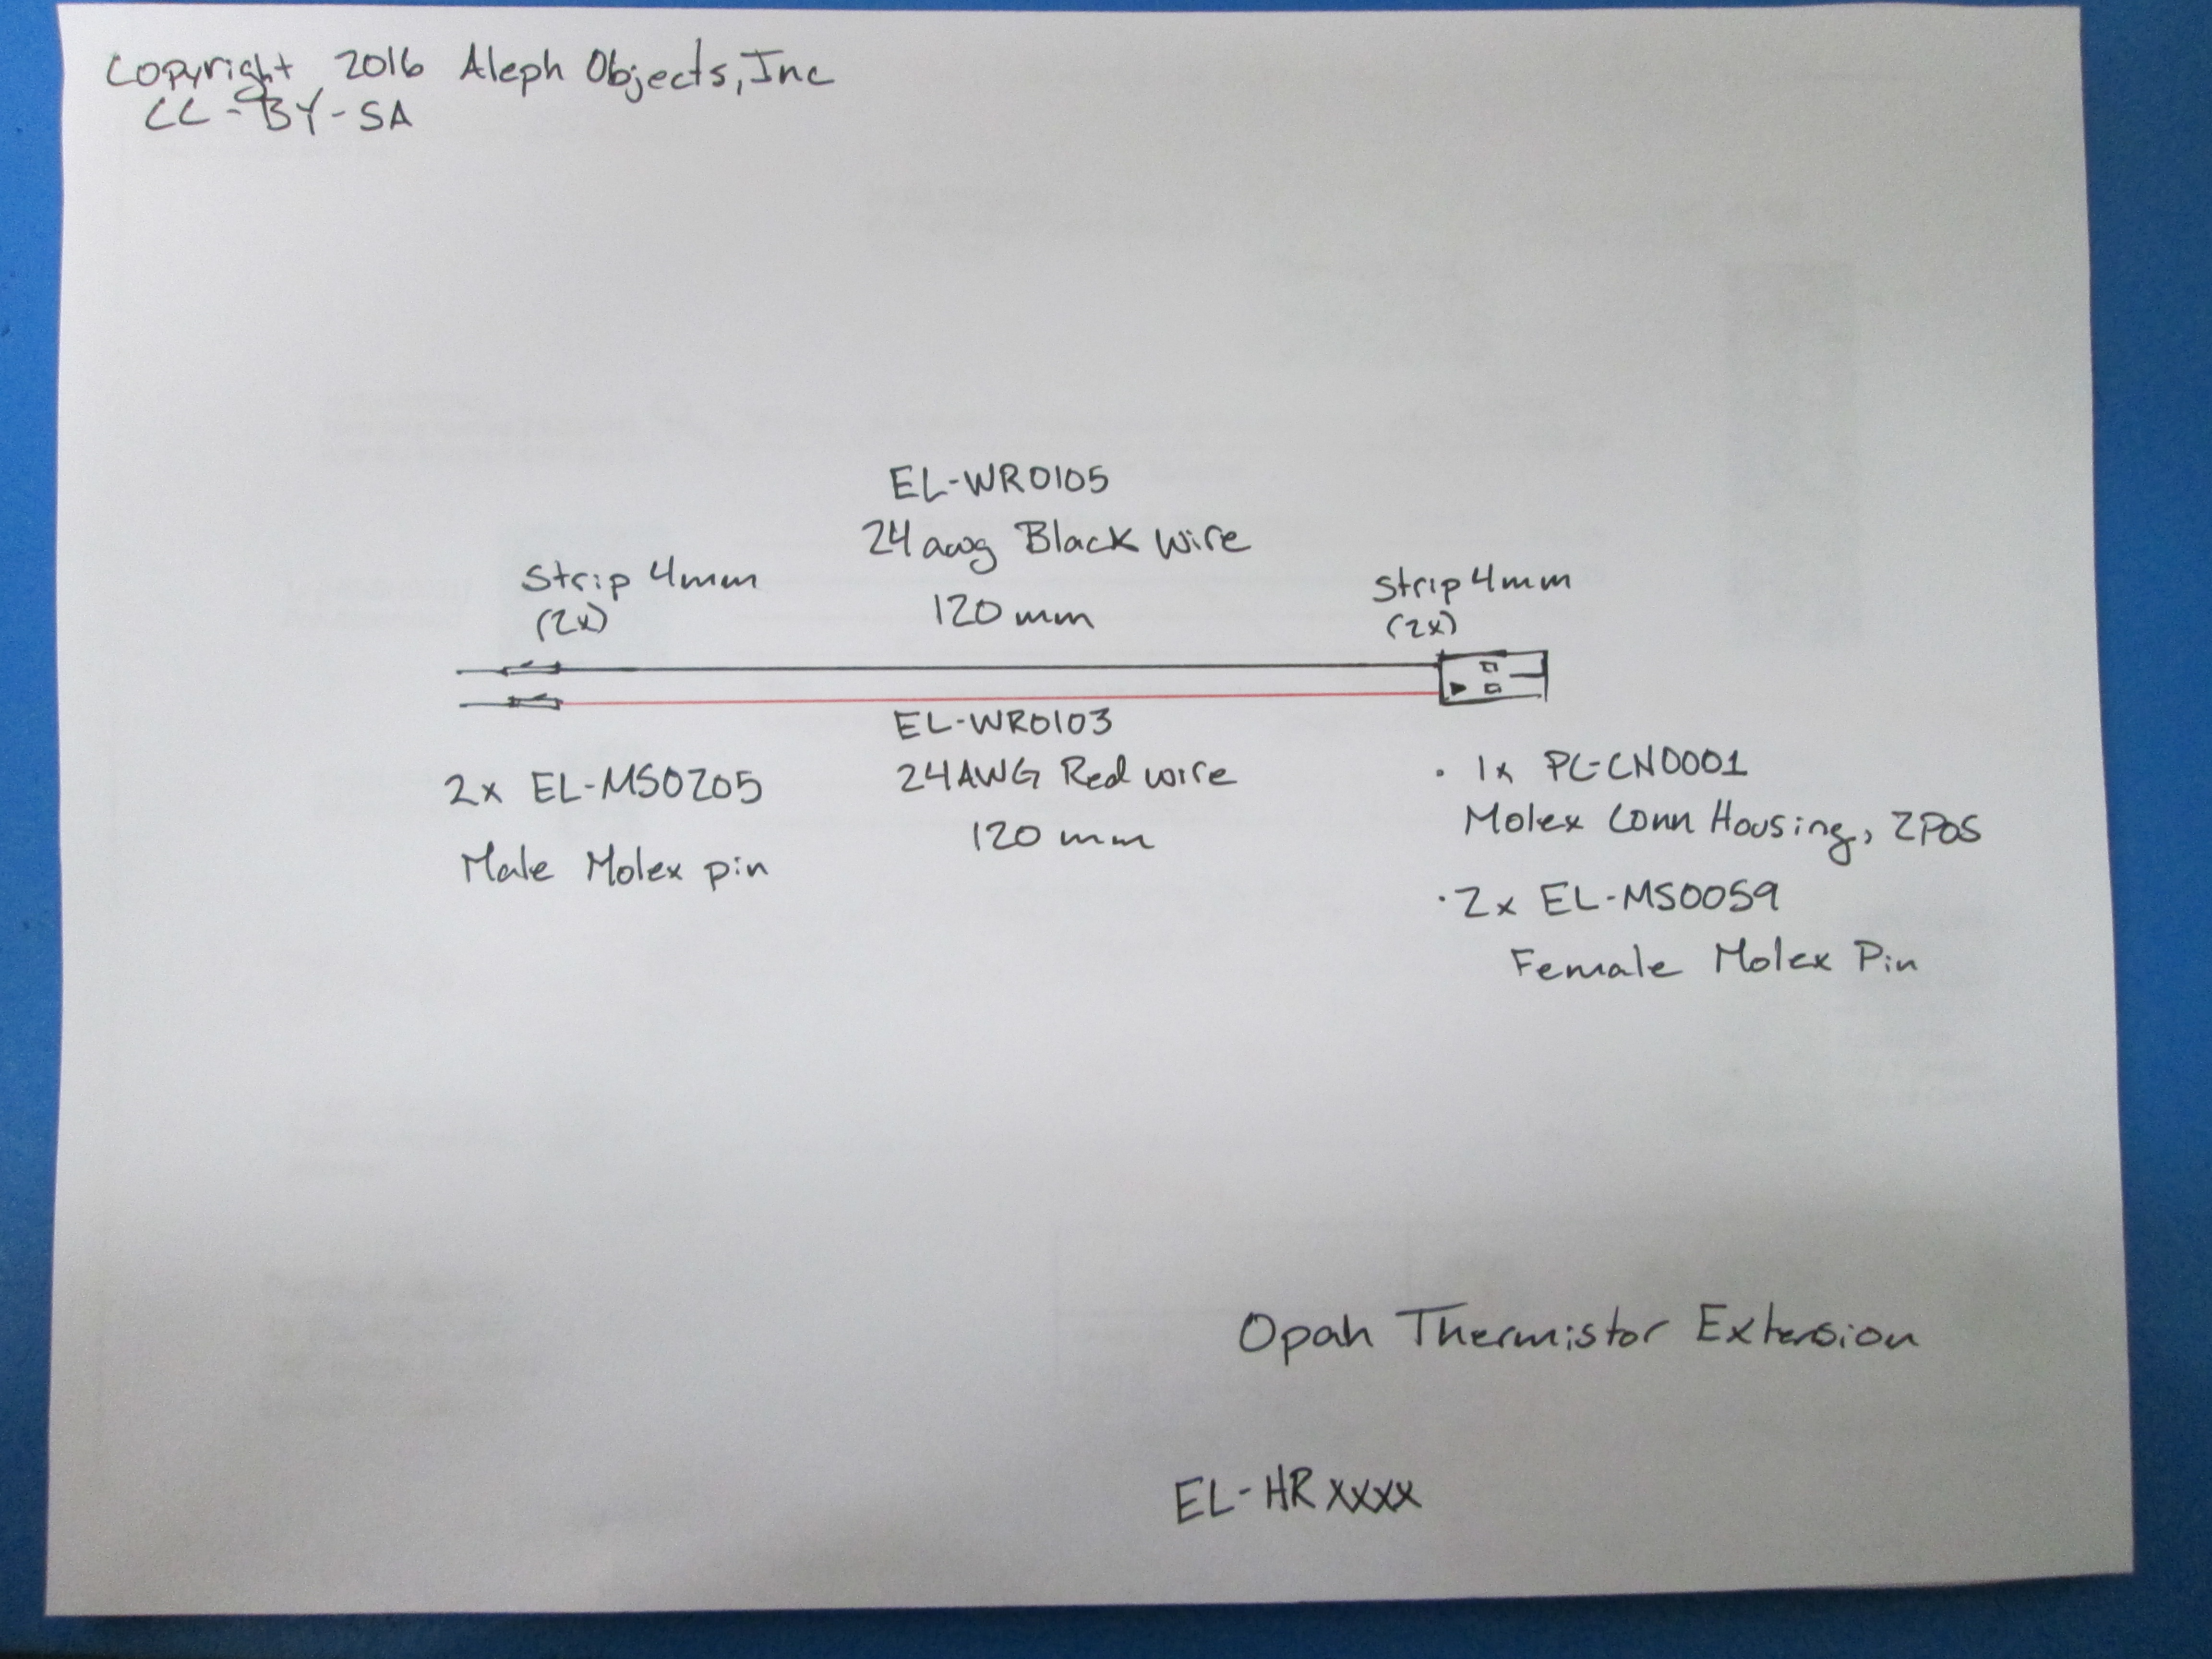 Copyright 2016 Aleph Objects, Inc
CC-BY-SA
EL-WR0105
24 awg Black Wire
120 mm
Strip 4mm
(2x)
Strip 4mm
(2x)
EL-WR0103
24AWG Red wire
120 mm
2x EL-MS0205
Male Molex pin
· 1x PC-CN0001
Molex Conn Housing, 2Pos
· 2x EL-MS0059
Female Molex Pin
Opah Thermistor Extension
EL-HRxxxx